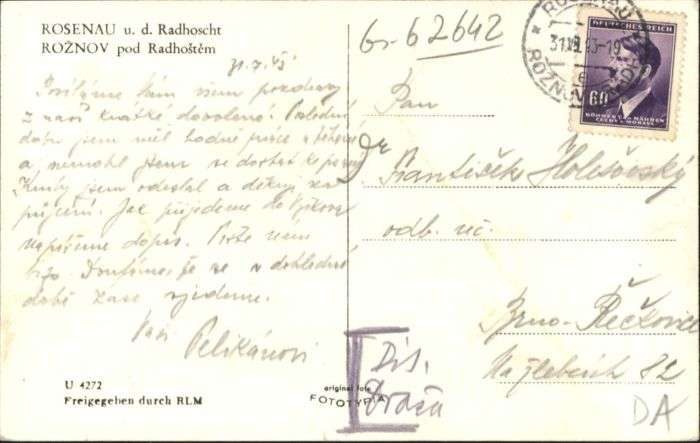 ROSENAU u. d. Radhoscht
ROŽNOV pod Radhoštěm
31.7.43
Posíláme Vám všem pozdravy
z naší krátké dovolené. Poslední
dobu jsem měl hodně práce a běhání
a nemohl jsem se dostat ke psaní
Knihy jsem odeslal a děkuji za
půjčení. Jak přijedeme do Vyškova
napíšeme dopis. Pište nám
brzo. Doufáme, že se v dohledné
době zase sjedeme.
Vaši
Pelikánovi
U 4272
Freigegeben durch RLM
original foto
FOTOTYPIA
Gr-b 2642
ROSENAU
31.VII.43-19
ROŽNOV
DEUTSCHES REICH
60
BÖHMEN UND MÄHREN
ČECHY A MORAVA
Pan
Dr
František Holešovský
odb. uč.
Brno-Řečkovice
Na žlebech 82
Dis.
Drasa
DA